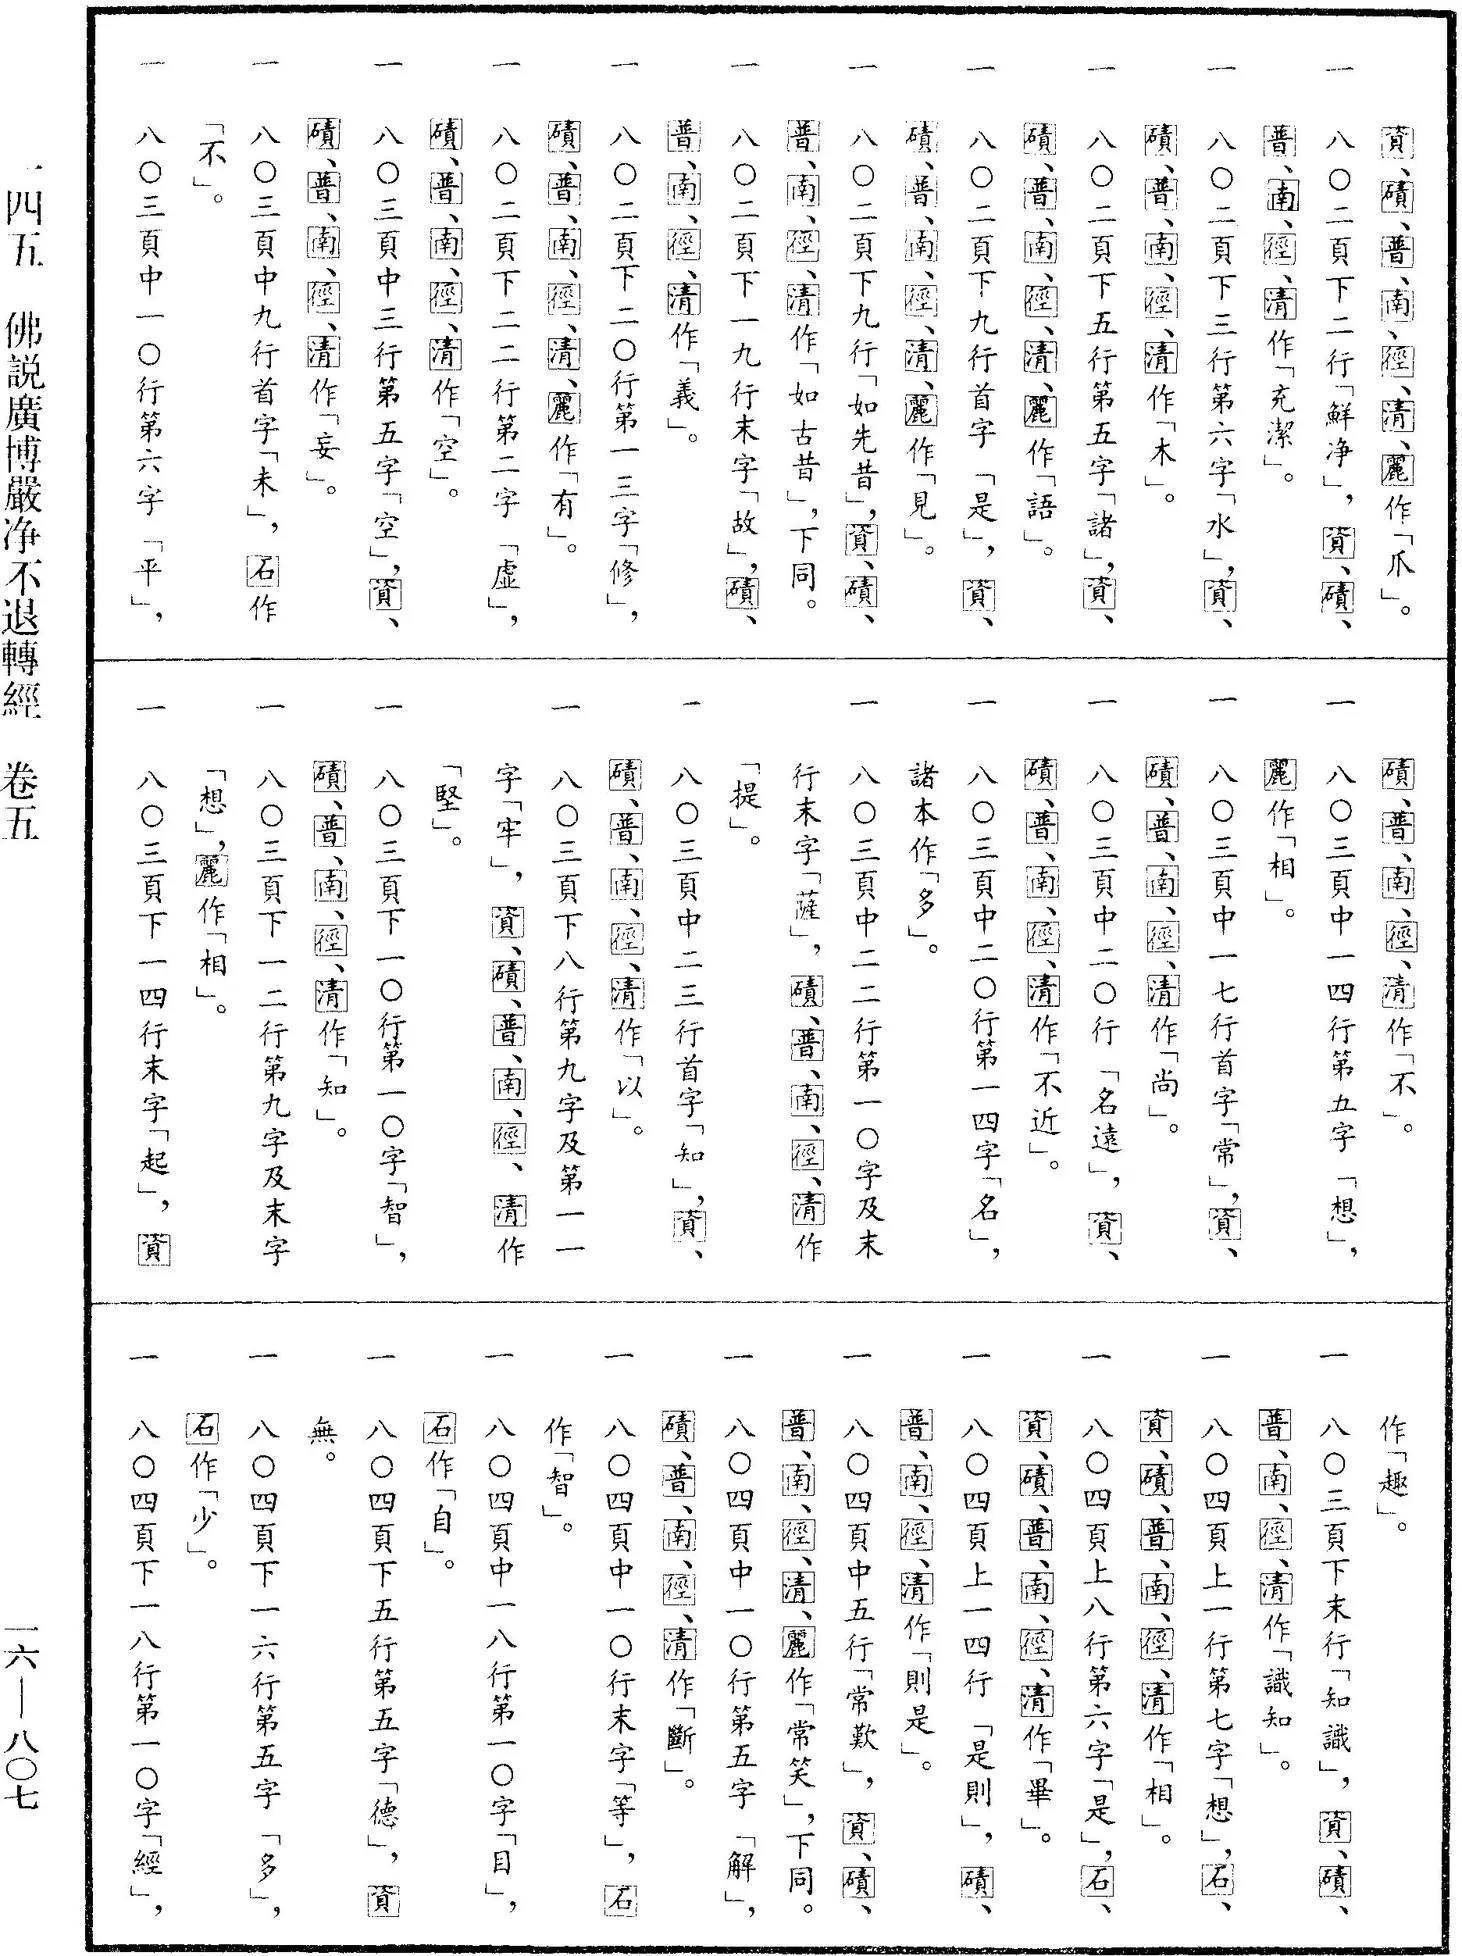 資、磧、普、南、徑、清、麗作「爪」。
一 八〇二頁下二行「鮮净」，資、磧、
普、南、徑、清作「充潔」。
一 八〇二頁下三行第六字「水」，資、
磧、普、南、徑、清作「木」。
一 八〇二頁下五行第五字「諸」，資、
磧、普、南、徑、清、麗作「語」。
一 八〇二頁下九行首字「是」，資、
磧、普、南、徑、清、麗作「見」。
一 八〇二頁下九行「如先昔」，資、磧、
普、南、徑、清作「如古昔」，下同。
一 八〇二頁下一九行末字「故」，磧、
普、南、徑、清作「義」。
一 八〇二頁下二〇行第一三字「修」，
磧、普、南、徑、清、麗作「有」。
一 八〇二頁下二二行第二字「虛」，
磧、普、南、徑、清作「空」。
一 八〇三頁中三行第五字「空」，資、
磧、普、南、徑、清作「妄」。
一 八〇三頁中九行首字「未」，石作
「不」。
一 八〇三頁中一〇行第六字「平」，
磧、普、南、徑、清作「不」。
一 八〇三頁中一四行第五字「想」，
麗作「相」。
一 八〇三頁中一七行首字「常」，資、
磧、普、南、徑、清作「尚」。
一 八〇三頁中二〇行「名遠」，資、
磧、普、南、徑、清作「不近」。
一 八〇三頁中二〇行第一四字「名」，
諸本作「多」。
一 八〇三頁中二二行第一〇字及末
行末字「薩」，磧、普、南、徑、清作
「提」。
一 八〇三頁中二三行首字「知」，資、
磧、普、南、徑、清作「以」。
一 八〇三頁下八行第九字及第一一
字「牢」，資、磧、普、南、徑、清作
「堅」。
一 八〇三頁下一〇行第一〇字「智」，
磧、普、南、徑、清作「知」。
一 八〇三頁下一二行第九字及末字
「想」，麗作「相」。
一 八〇三頁下一四行末字「起」，資
作「趣」。
一 八〇三頁下末行「知識」，資、磧、
普、南、徑、清作「識知」。
一 八〇四頁上一行第七字「想」，石、
資、磧、普、南、徑、清作「相」。
一 八〇四頁上八行第六字「是」，石、
資、磧、普、南、徑、清作「畢」。
一 八〇四頁上一四行「是則」，磧、
普、南、徑、清作「則是」。
一 八〇四頁中五行「常歎」，資、磧、
普、南、徑、清、麗作「常笑」，下同。
一 八〇四頁中一〇行第五字「解」，
磧、普、南、徑、清作「斷」。
一 八〇四頁中一〇行末字「等」，石
作「智」。
一 八〇四頁中一八行第一〇字「目」，
石作「自」。
一 八〇四頁下五行第五字「德」，資
無。
一 八〇四頁下一六行第五字「多」，
石作「少」。
一 八〇四頁下一八行第一〇字「經」，
一四五 佛説廣博嚴净不退轉經 卷五
一六—八〇七